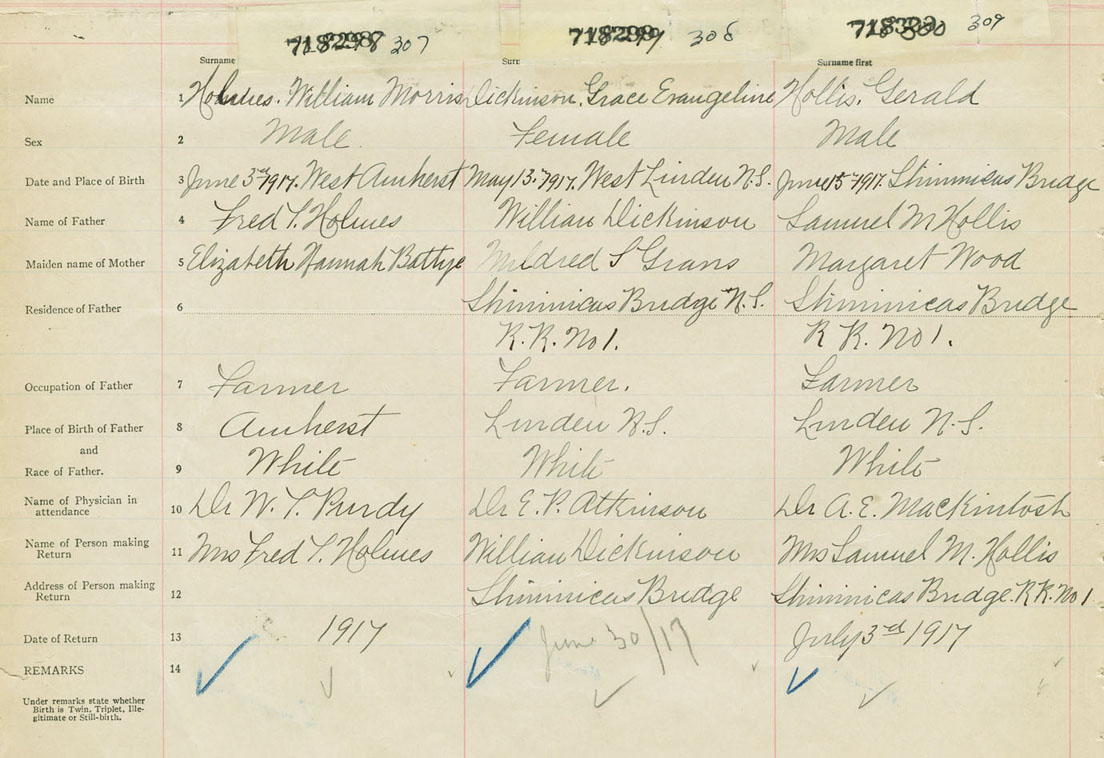 307 308 309
Surname Surn Surname first
Name 1 Holmes. William Morris Dickinson. Grace Evangeline Hollis. Gerald
Sex 2 Male. Female Male
Date and Place of Birth 3 June 3rd 1917. West Amherst May 13. 1917. West Linden N.S. June 15 1917. Shinimicas Bridge
Name of Father 4 Fred T. Holmes William Dickinson Samuel M Hollis
Maiden name of Mother 5 Elizabeth Hannah Battye Mildred S Grans Margaret Wood
Residence of Father 6 Shinimicas Bridge N.S. Shinimicas Bridge
R. R. No 1. R R. No 1.
Occupation of Father 7 Farmer Farmer. Farmer
Place of Birth of Father 8 Amherst Linden N.S. Linden N.S.
and
Race of Father. 9 White White White
Name of Physician in
attendance 10 Dr W. T. Purdy Dr E. P. Atkinson Dr A. E. MacKintosh
Name of Person making
Return 11 Mrs Fred T. Holmes William Dickinson Mrs Samuel M. Hollis
Address of Person making
Return 12 Shinimicas Bridge Shinimicas Bridge. R R. No 1
Date of Return 13 1917 June 30/17 July 3rd 1917
REMARKS 14
Under remarks state whether
Birth is Twin, Triplet, Ille-
gitimate or Still-birth.